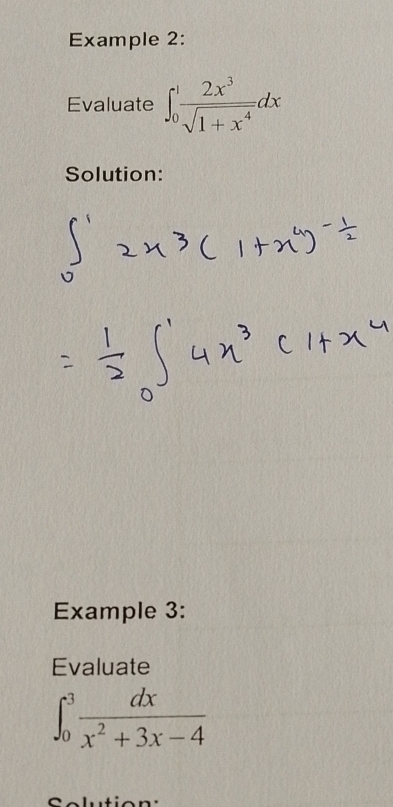 Example 2:
Evaluate ∫₀¹ 2x³/√(1 + x⁴) dx
Solution:
∫₀¹ 2x³ (1+x⁴)^(-1/2)
= 1/2 ∫₀¹ 4x³ (1+x⁴
Example 3:
Evaluate
∫₀³ dx/(x² + 3x − 4)
Solution: